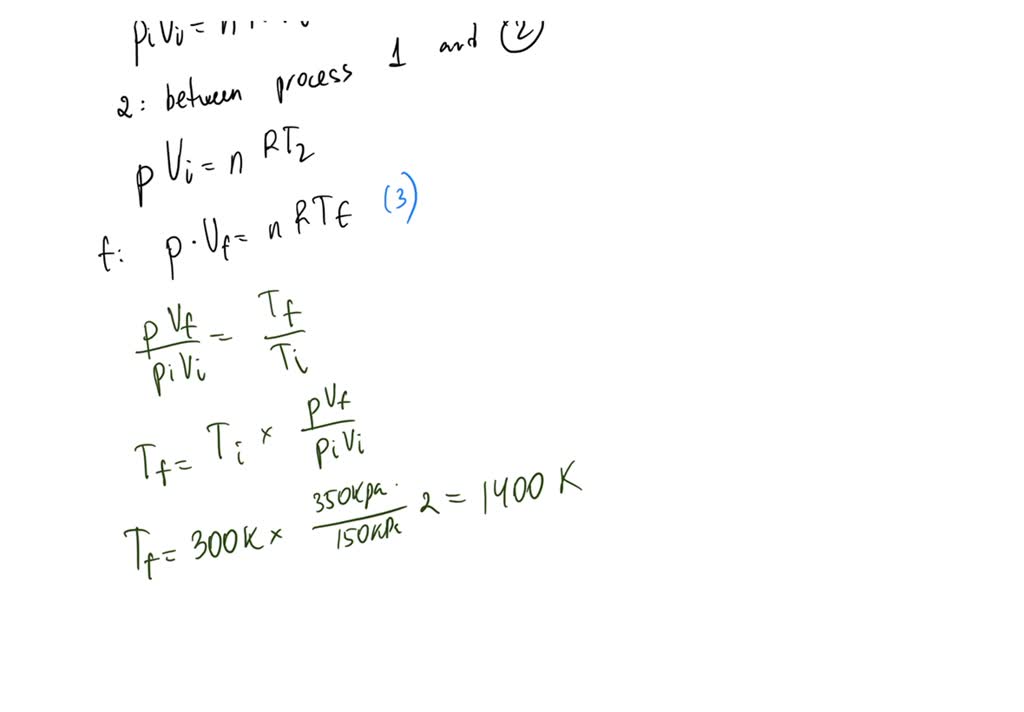 piVi = n
2: between process 1 and (2)
p Vi = n RT2
f: p · Vf = n RTf (3)
p Vf / pi Vi = Tf / Ti
Tf = Ti × p Vf / pi Vi
Tf = 300K × 350Kpa · / 150KPa 2 = 1400 K